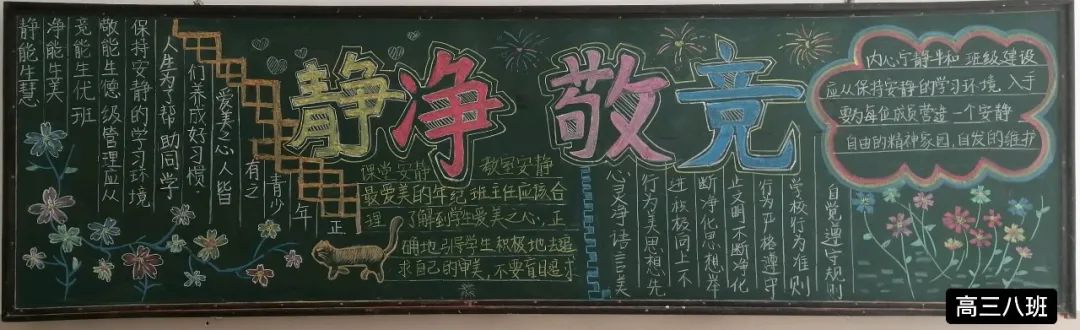 静能生慧
净能生美
竞能生优 班
敬能生德 级管理应从
保持安静的学习环境
人生为主帮助同学
们养成好习惯
爱美之心人皆
有之
青少
年
正
静净敬竞
课堂安静 教室安静
最爱美的年纪 班主任应该合
理 了解到学生爱美之心,正
确地引导学生积极地去追
求自己的审美,不要盲目追求
心灵净语言美
行为美思想先
进积极向上不
断净化思想举
止文明不断净化
行为严格遵守
学校行为准则
自觉遵守规则
内心宁静平和 班级建设
应从保持安静的学习环境 入手
要为每位成员营造一个安静
自由的精神家园,自发的维护
高三八班